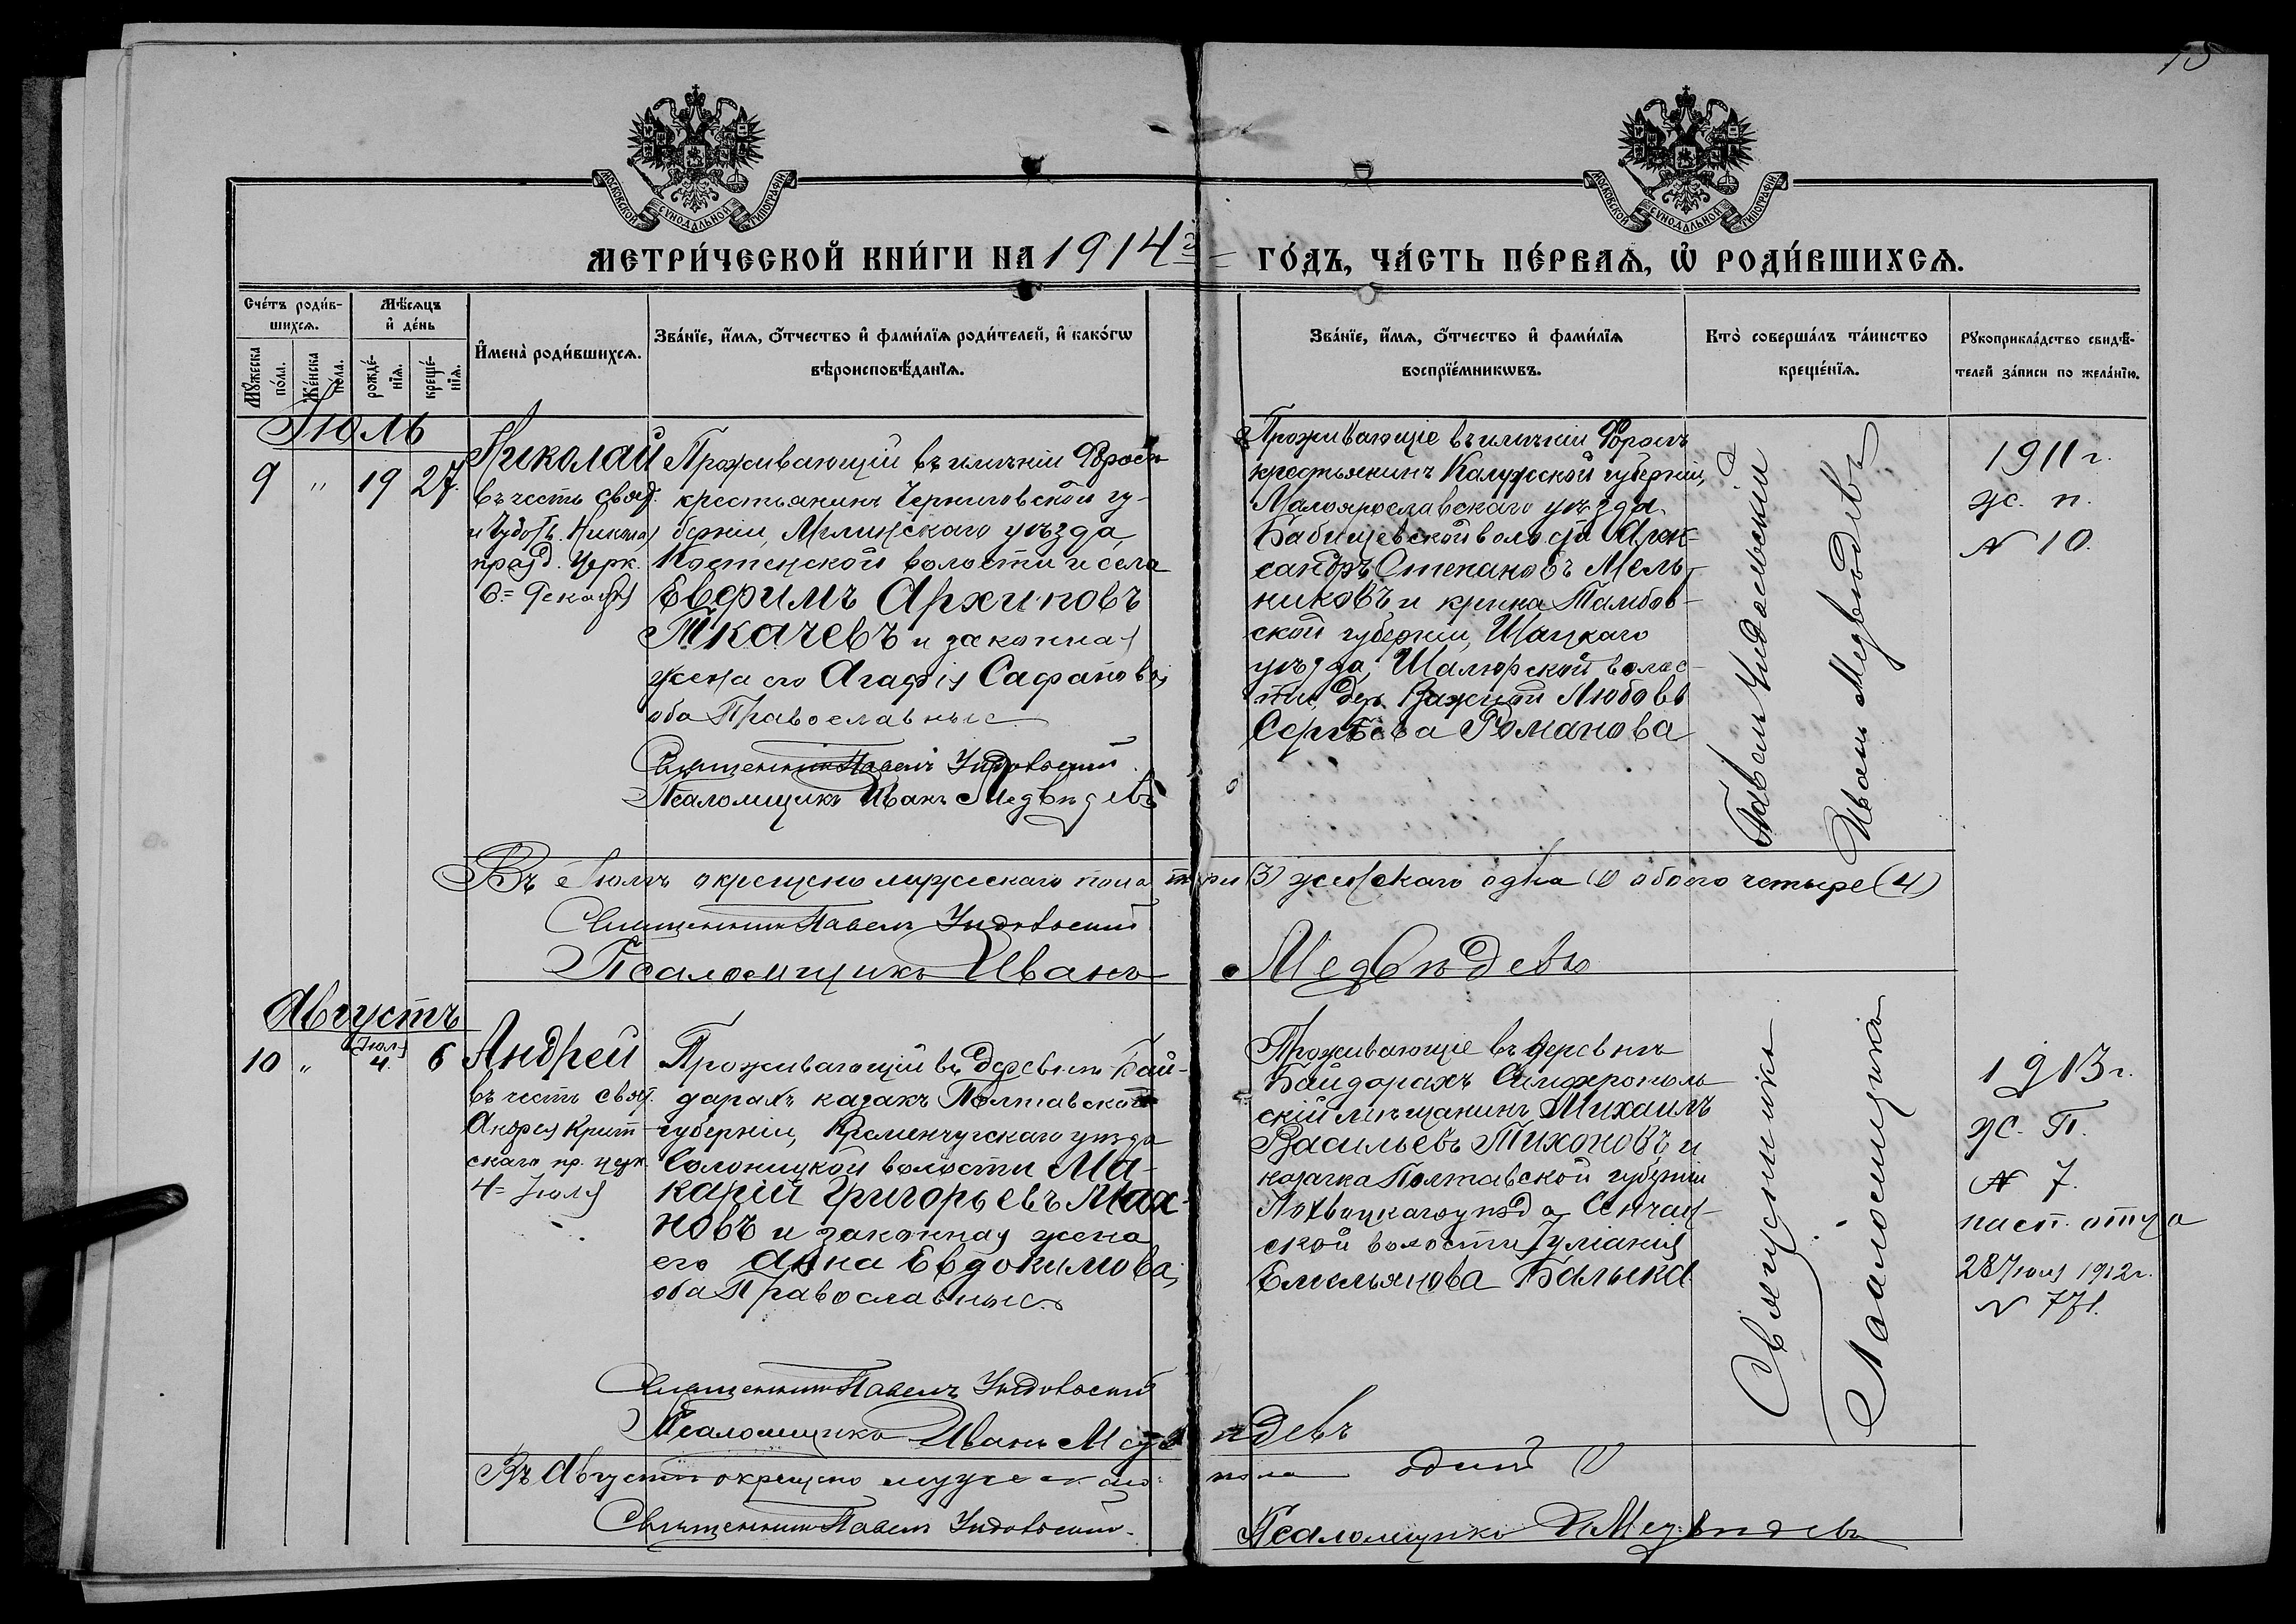 15
МОСКОВСКОЙ СѴНОДАЛЬНОЙ ТИПОГРАФІИ
МОСКОВСКОЙ СѴНОДАЛЬНОЙ ТИПОГРАФІИ
МЕТРИ́ЧЕСКОЙ КНИ́ГИ НА 1914й ГО́ДЪ, ЧА́СТЬ ПЕ́РВАѦ, Ѡ҆ РОДИ́ВШИХСѦ.
Сче́тъ роди́в-
шихсѧ.
Мѣ́сѧцъ
и҆ де́нь
Мꙋ́жеска
по́ла.
Же́нска
по́ла.
рожде́-
нїѧ.
креще́-
нїѧ.
И҆мена̀ роди́вшихсѧ.
Зва́нїе, и҆́мѧ, о҆́тчество и҆ фами́лїѧ роди́телей, и҆ како́гѡ
вѣроисповѣ́данїѧ.
Зва́нїе, и҆́мѧ, о҆́тчество и҆ фами́лїѧ
воспрїе́мникѡвъ.
Кто̀ соверша́лъ та́инство
креще́нїѧ.
Рꙋкоприкла́дство свидѣ́-
телей за́писи по жела́нїю.
Іюль
9 " 19 27.
Николай
въ честь свят.
и Чудотв. Никола
празд. церк.
6= Декабря
Проживающій въ имѣніи Форосъ
крестьянинъ Черниговской гу-
берніи, Мглинскаго уѣзда,
Костенской волости и села
Евфимъ Архиповъ
Ткачевъ и законная
жена его Агафія Сафанова,
оба Православные
Священникъ Павелъ Ундольскій
Псаломщикъ Иванъ Медвѣдевъ
Проживающіе въ имѣніи Форосъ
крестьянинъ Калужской губерніи,
Малоярославскаго уѣзда
Бабичевской волости Алек-
сандръ Степановъ Мель-
никовъ и крест-на Тамбов-
ской губерніи, Шацкаго
уѣзда, волос-
ти, дер. Любовь
Сергѣева Романова
Павелъ Ундольскій
Иванъ Медвѣдевъ
1911 г.
ж. п.
№ 10.
Въ Іюлѣ окрещено мужескаго пола три (3) женскаго одна (1) обоего четыре (4)
Священникъ Павелъ Ундольскій
Псаломщикъ Иванъ Медвѣдевъ
Августъ
10 " (Іюля) 4. 6
Андрей
въ честь свят.
Андрея Крит-
скаго пр. церк.
4= Іюля
Проживающій въ деревнѣ Бай-
дарахъ казакъ Полтавской
губерніи, Кременчугскаго уѣзда
Солоницкой волости Ма-
карій Григорьевъ Мах-
новъ и законная жена
его Анна Евдокимова,
оба Православные.
Священникъ Павелъ Ундольскій
Псаломщикъ Иванъ Медвѣдевъ
Проживающіе въ деревнѣ
Байдарахъ Симферополь-
скій мѣщанинъ Михаилъ
Васильевъ Тихоновъ и
казачка Полтавской губерніи
Лохвицкаго уѣзда, Сенчан-
ской волости
Емельянова Балыка
Священникъ
Псаломщикъ
1913 г.
ж. п.
№ 7.
пасп. отца
28 Іюня 1912 г.
№ 771.
Въ Августѣ окрещено мужескаго пола одинъ (1)
Священникъ Павелъ Ундольскій.
Псаломщикъ И Медвѣдевъ